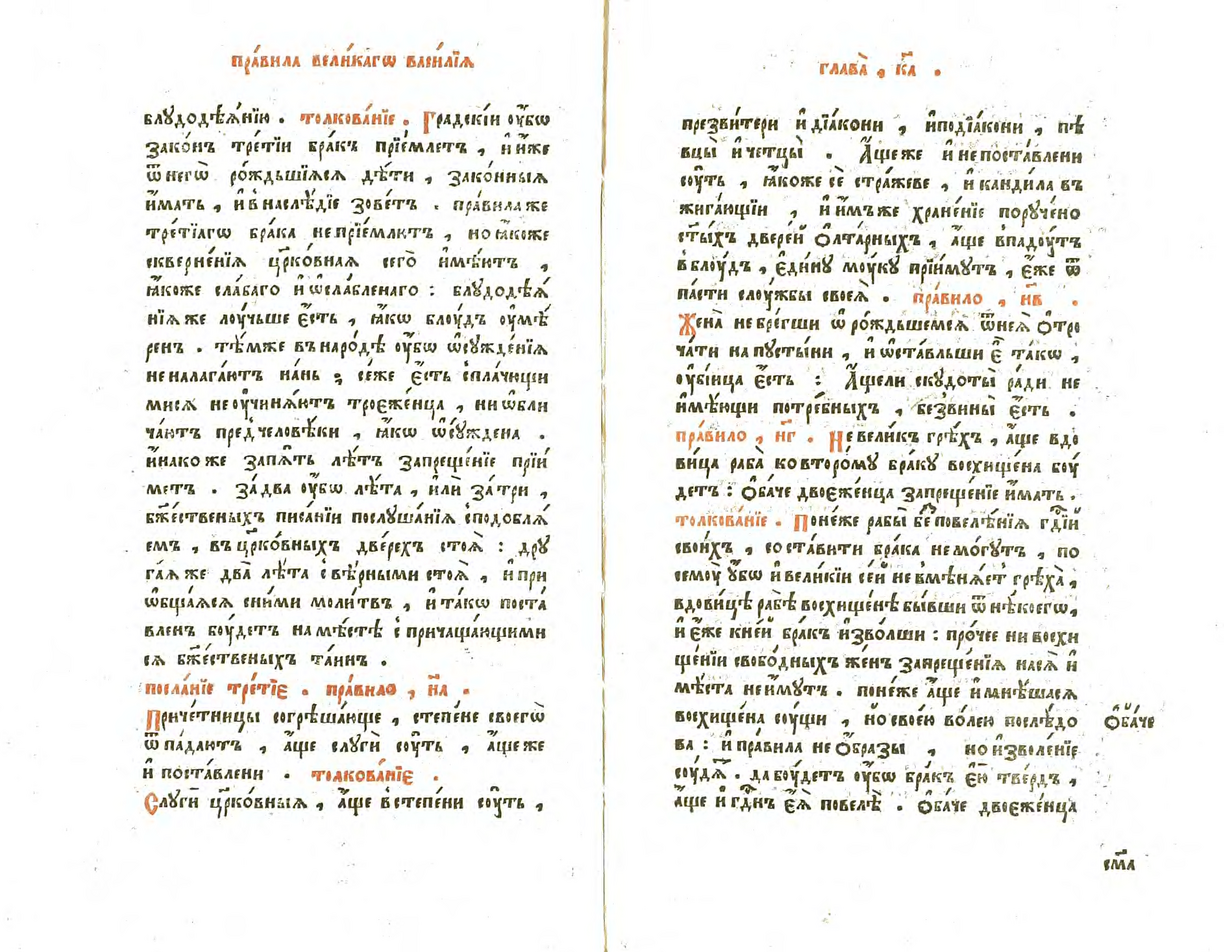 пра́вила вели́кагѡ васи́лїѧ
блꙋдодѣѧ́нїю . толкова́нїе . Гра́дскїи ᲂу҆́бѡ
зако́нъ тре́тїи бра́къ прїе́млетъ , и҆ и҆́же
ѿ негѡ̀ ро́ждьшїѧсѧ дѣ́ти , зако́нныѧ
и҆́мать , и҆ в наслѣ́дїе зове́тъ . пра́вила же
тре́тїагѡ бра́ка не прїе́млютъ , но ꙗ҆́коже
скверне́нїѧ цр҃ко́внаѧ сего̀ и҆мѣ́ютъ ,
ꙗ҆́коже сла́баго и҆ ѡ҆сла́бленаго : блꙋдодѣѧ́
нїѧ же лоу́чьше є҆́сть , ꙗ҆́кѡ блоу́дъ ᲂу҆мѣ́
ренъ . тѣ́мже въ наро́дѣ ᲂу҆́бѡ ѡ҆сꙋжде́нїѧ
не налага́ютъ на́нь ; се́же є҆́сть сплачющи
мисѧ не ᲂу҆чинѧ́ютъ троеже́нца , ни ѡ҆бли
ча́ютъ пред̾ человѣ́ки , ꙗ҆́кѡ ѡ҆сꙋжде́на .
и҆на́ко же запѧ́ть лѣ́тъ запреще́нїе прїи́
метъ . за́ два ᲂу҆́бѡ лѣ́та , и҆лѝ за́ три ,
бж҃е́ственыхъ писа́нїи послꙋша́нїѧ сподоблѧ́
емъ , въ цр҃ко́вныхъ две́рехъ стоѧ̀ : дрꙋ
га́ѧ же два̀ лѣ́та с вѣ́рными стоѧ̀ , и҆ при
ѡ҆бща́ѧсѧ с ни́ми моли́твъ , и҆ та́кѡ поста́
вленъ боу́детъ на мѣ́стѣ с причаща́ющими
сѧ бж҃е́ственыхъ та́инъ .
посла́нїе тре́тїе . пра́вило , н҃а .
Приче́тницы согрѣша́юще , степе́не своегѡ̀
ѿпа́даютъ , а҆́ще слꙋги̑ соу́ть , а҆́ще же
и҆ поста́влени . толкова́нїе .
Слꙋги̑ цр҃ко́вныѧ , а҆́ще в степе́ни соу́ть ,
глава̀ , к҃а .
презви́тери и҆ дїа́кони , и҆подїа́кони , пѣ
вцы̀ и҆ четцы̀ . А҆́ще же и҆ не поста́влени
соу́ть , ꙗ҆́коже сѐ стра́жеве , и҆ канди́ла въ
жига́ющїи , и҆ и҆́мъже хране́нїе порꙋ́чено
ст҃ы́хъ двере́й ѻ҆лта́рныхъ , а҆́ще впадоу́тъ
в блоу́дъ , є҆ди́нꙋ моу́кꙋ прїи́мꙋтъ , є҆́же ѿ
па́сти слоу́жбы своеѧ̀ . пра́вило , н҃в .
Жена̀ небре́гши ѡ҆ ро́ждьшемсѧ ѿ неѧ̀ ѻ҆тро
ча́ти на пꙋсты́ни , и҆ ѡ҆ста́вльши є҆̀ та́кѡ ,
ᲂу҆бі́ица є҆́сть : А҆́ще ли скꙋдоты̀ ра́ди не
и҆мѣ́ющи потре́бныхъ , без̾ вины̀ є҆́сть .
пра́вило , н҃г . Не вели́къ грѣ́хъ , а҆́ще вдо
ви́ца раба̀ ко второ́мꙋ бра́кꙋ восхище́на боу́
детъ : ѻ҆ба́че двоеже́нца запреще́нїе и҆́мать .
толкова́нїе . Поне́же рабы̀ без̾ повелѣ́нїѧ гд҃і́й
свои́хъ , соста́вити бра́ка не мо́гꙋтъ , по
семоу̀ ᲂу҆́бѡ и҆ вели́кїи се́й не вмѣнѧ́ет̾ грѣ́ха ,
вдови́цѣ ра́бѣ восхище́нѣ бы́вши ѿ нѣ́коегѡ ,
и҆ є҆́же к не́й бра́къ и҆зво́лши : про́чее ни восхи
ще́нїи свобо́дныхъ же́нъ запреще́нїѧ на сѧ̀ и҆
мѣ́ста не и҆́мꙋтъ . поне́же а҆́ще и҆ мнѣ́шасѧ
восхище́на соу́щи , но̀ свое́ю во́лею послѣ́до
ва : и҆ пра́вила не ѻ҆́бразы , но и҆зволе́нїе
соу́дѧт̾ . да боу́детъ ᲂу҆́бѡ бра́къ є҆ю̀ тве́рдъ ,
а҆́ще и҆ гд҃нъ є҆ѧ̀ повелѣ̀ . Ѻ҆ба́че двоеже́нца
Ѻ҆ба́че
см҃а